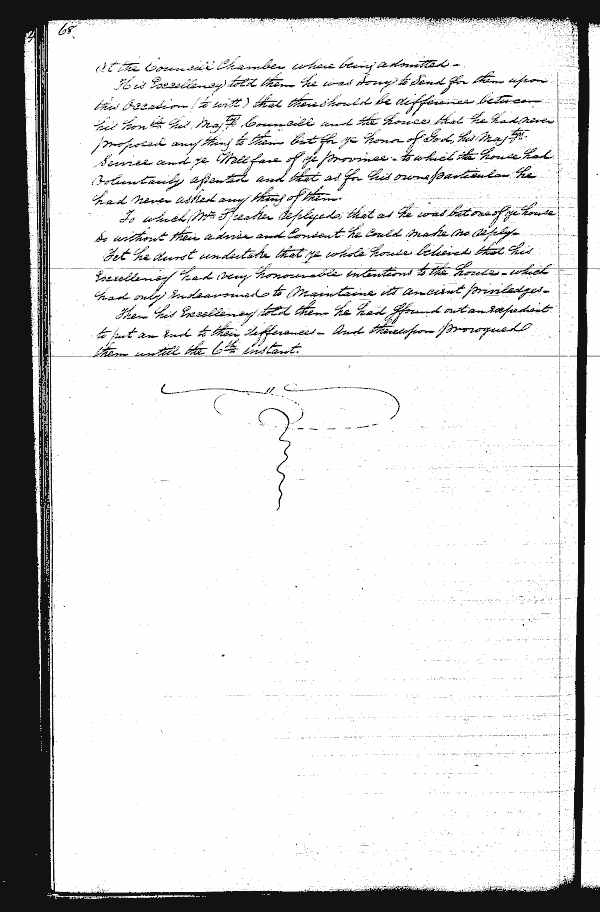 68.
At the Councill Chamber where being admitted -
His Excellency told them he was Sorry to Send for them upon
this Occasion (to witt) that there should be difference between
his honble his Majtys Councill and the house that he had never
proposed any thing to them but for ye honor of God, his Majtys
Service and ye Wellfare of ye province - to which the house had
Voluntarily assented and that as for his owne particular he
had never asked any thing of them.
To which Mr Speaker replyed, that as he was but one of ye house
so without their advise and Consent he could make no reply -
Yet he durst undertake that ye whole house believed that his
Excellency had very honourable intentions to the house - which
had only Endeavoured to Maintaine its ancient priviledges -
Then his Excellency told them he had ffound out an expedient
to put an end to their differences - And thereupon prorogued
them untill the 6th instant.